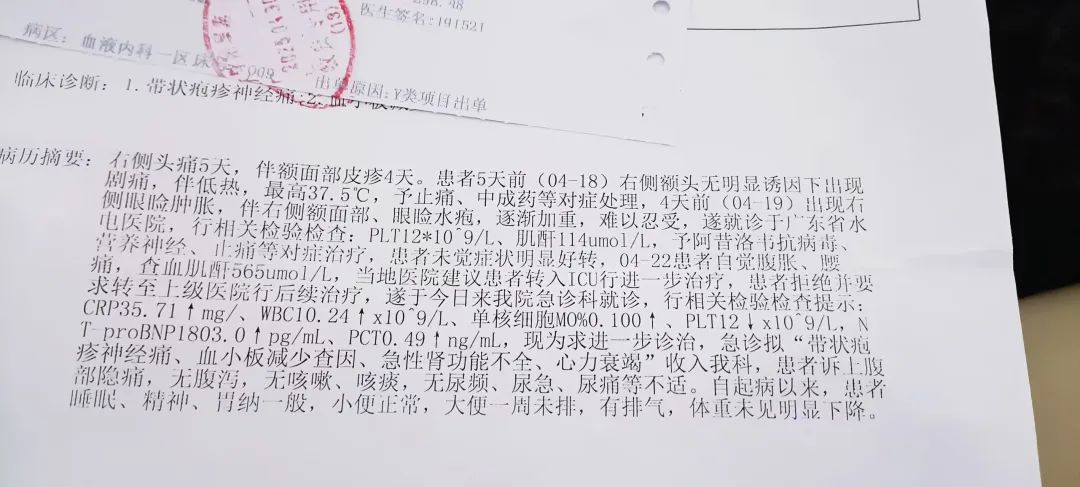 298.48
医生签名:191521
病区: 血液内科一区床
009
出单原因:Y类项目出单
临床诊断: 1.带状疱疹神经痛;2.
病历摘要: 右侧头痛5天, 伴额面部皮疹4天。患者5天前(04-18)右侧额头无明显诱因下出现
剧痛, 伴低热, 最高37.5℃, 予止痛、中成药等对症处理, 4天前(04-19)出现右
侧眼睑肿胀, 伴右侧额面部、眼睑水疱, 逐渐加重, 难以忍受, 遂就诊于广东省水
电医院, 行相关检验检查: PLT12*10^9/L、肌酐114umol/L, 予阿昔洛韦抗病毒、
营养神经、止痛等对症治疗, 患者未觉症状明显好转, 04-22患者自觉腹胀、腰
痛, 查血肌酐565umol/L, 当地医院建议患者转入ICU行进一步治疗, 患者拒绝并要
求转至上级医院行后续治疗, 遂于今日来我院急诊科就诊, 行相关检验检查提示:
CRP35.71↑mg/、WBC10.24↑x10^9/L、单核细胞MO%0.100↑、PLT12↓x10^9/L, N
T-proBNP1803.0↑pg/mL、PCT0.49↑ng/mL, 现为求进一步诊治, 急诊拟“带状疱
疹神经痛、血小板减少查因、急性肾功能不全、心力衰竭”收入我科, 患者诉上腹
部隐痛, 无腹泻, 无咳嗽、咳痰, 无尿频、尿急、尿痛等不适。自起病以来, 患者
睡眠、精神、胃纳一般, 小便正常, 大便一周未排, 有排气, 体重未见明显下降。